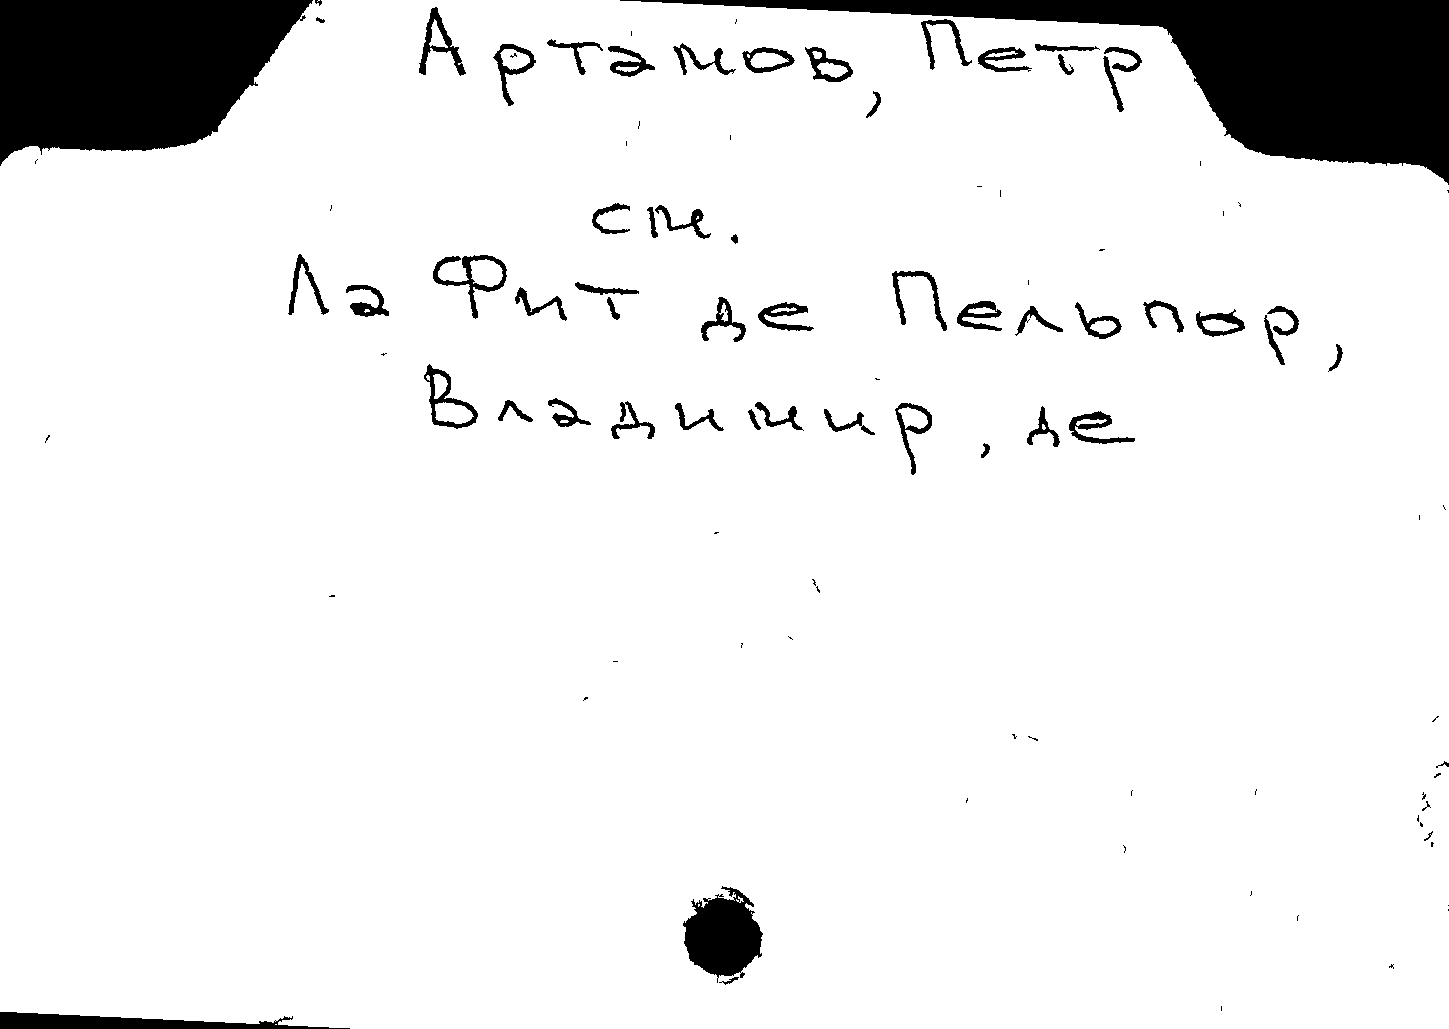 Артамов, Петр
см.
Ла Фит де Пельпор,
Владимир, де